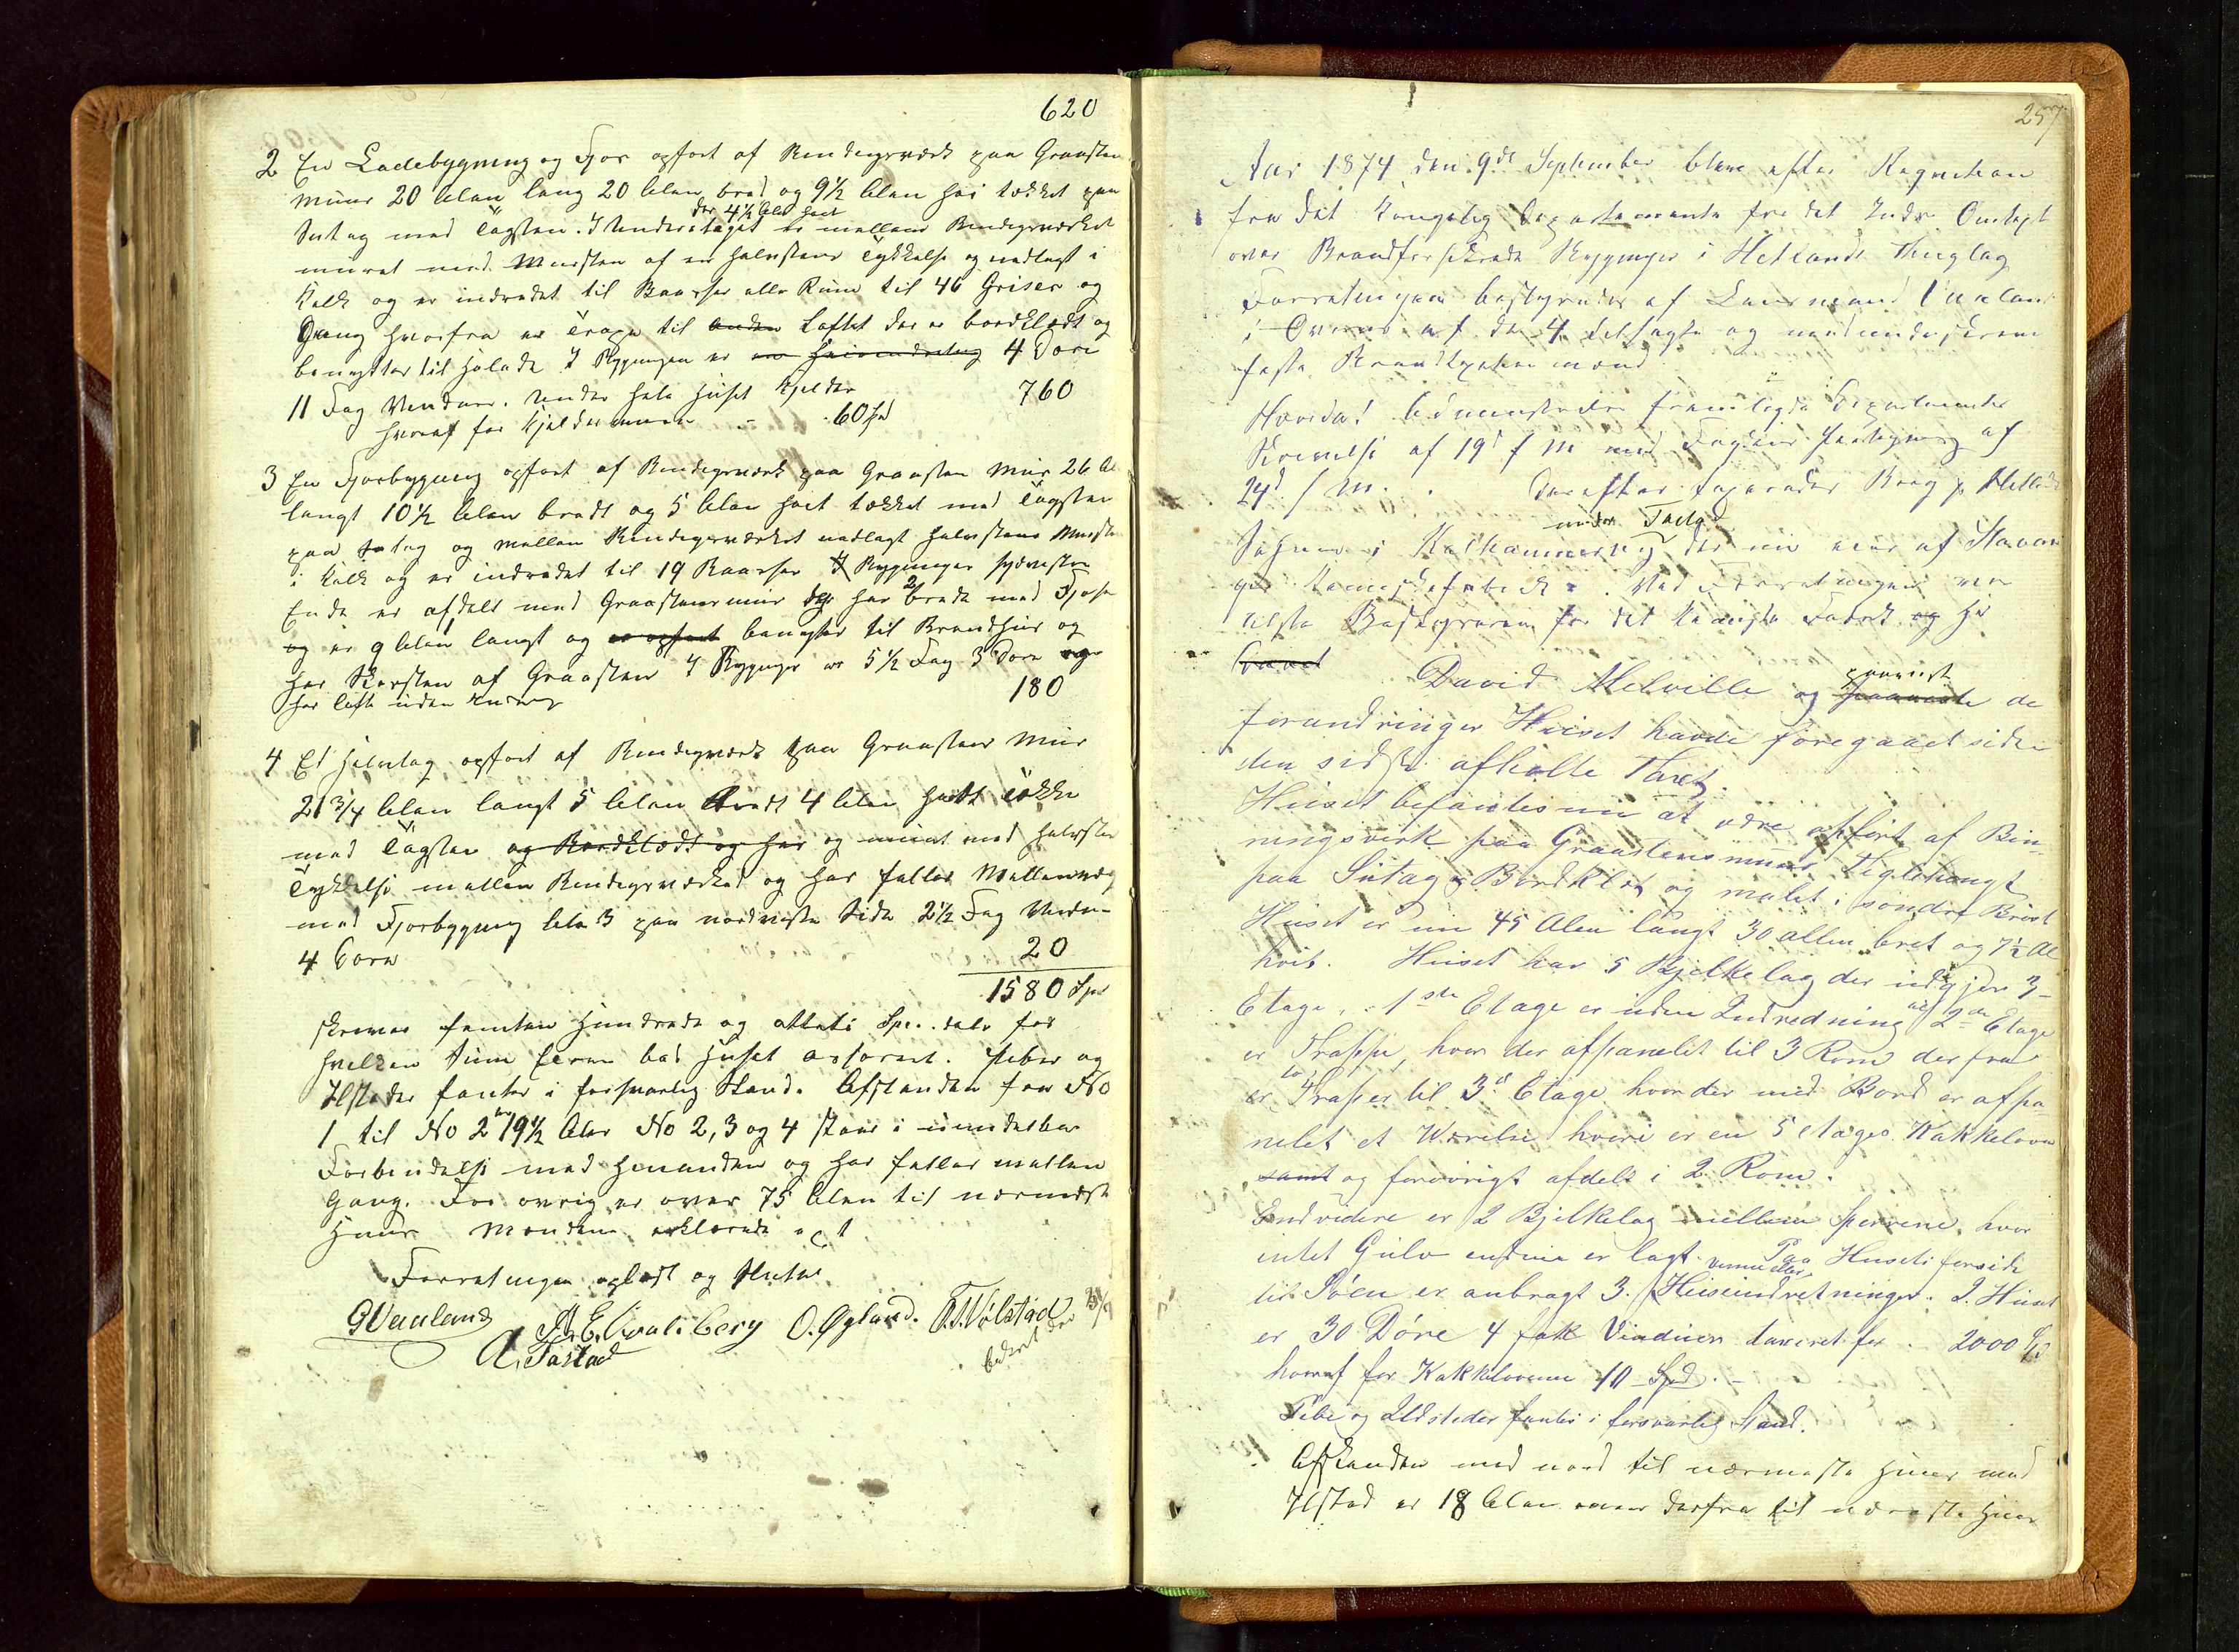 620
2 En Ladebygning og Fjos opført af Bindingsværk paa Graasten
Muur 20 Alen lang 20 Alen bred og 9½ Alen høi tækket paa
Sutag med Tagsten. I Underetaget er mellem Bindingsværket
der 4½ Alen høit
muret med Mursten af en halvstens Tykkelse og nedlagt i
Kalk og er indredet til Baaser alle Rum til 40 Griser og
Gang hvorfra er Trappe til Anden Loftet der er bordklædt og
benyttes til Hølade I Bygningen er en Heiseindretning 4 Døre
11 Fag Vinduer. Under hele Huset Kjelder 760
hvoraf for Kjeldermuren - 60 Spd
3 En Fjosbygning opført af Bindingsværk paa Graasten Muur 26 Al
langt 10½ Alen bredt og 5 Alen høit tækket med Tagsten
paa Sutag og mellem Bindingsværket nedlagt halvstens Mursten
i Kalk og er indredet til 19 Baaser I Bygningens sydvestre
Ende er afdelt med Graastensmuur der har 2 Brede med Fjøset
og er 9 Alen langt og er opført benyttes til Brændhus og
har Skorsten af Graasten I Bygningen er 5½ Fag 3 Døre og
har Loft uden Indredning 180
4 Et Halvtag opført af Bindingsværk paa Graastens Muur
21¾ Alen langt 5 Alen bredt 4 Alen høit tække
med Tagsten og Bordklædt og har og muret med halvsten
Tykkelse mellem Bindingsværket og har fælles Mellemvæg
med Fjosbygning litr 3 paa nordvestre Side 2½ Fag Vindu-
4 Døre 20
1580 Spd
skriver femten Hundrede og otteti Spec. daler for
hvilken Sum Eieren bad Huset assureret. Piber og
Ildsteder fantes i forsvarlig Stand. Afstanden fra No
1 til No 2 er 19½ Alen No 2, 3 og 4 staar i umiddelbar
Forbindelse med hinanden og har fælles mellem
Gang. For øvrig er over 75 Alen til nærmeste
Huus. Mændene erklærede o c t
Forretningen oplæst og sluttet.
G Vauland A. E. Svalesberg O. Øglænd. T. T. Vølstad
A. Tastad
257
Aar 1874 den 9de September blev efter Requisition
fra det Kongelig Departemente for det Indre Omtaxt
over Brandforsikrede Bygninger i Hetlands Thinglag
Forretningen bestyredes af Lensmand Vauland
i Overvær af de 4 tiltagte og medunderskrevne
faste Brandtaxtionsmænd
Hvorda! Administrator fremlagde Departementets
Skrivelse af 19d f M med Fogdens Paategning af
24d. f M. Derefter foretages Brug p. Hetland
under Tastad
Søhuus i Kalhammervig der nu eies af Stavan
ger Kemiskefabrik. Ved Forretningen var
tilste Bestyreren for det kemiske Fabrik og Hr
David Melville og paaviste de
forandringer Huset havde foregaaet siden
den sidste afholte Taxt.
Huset befantes nu at være opført af Bin-
ningsverk paa Graastensmuur, Teglehengt
paa Sutag, Bordklæt og malet; søndre Brøst
Huset er nu 45 Alen langt 30 allen bret og 7½ Al
høit. Huset har 5 Bjelkelag der udgjør 3-
Etage. 1ste Etage er uden Indredning til 2den Etage
er Trappe, hvor der afpanelet til 3 Rom derfra
er to Traper til 3d Etage hvor der med Bord er afpa-
nelet et Værelse hvori er en 5 etages Kakkelovn
samt og forøvrigt afdelt i 2 Rom.
Endvidere er 2 Bjelkelag mellem Sperrene, hvor
intet Gulv endnu er lagt. Paa Husets forside
til Søen er anbragt 3. Heiseindretninger. I Huset
er 30 Døre 4 fak Vinduer taxeret for 2000 Spd
hvoraf for Kakkelovnen 10 Spd. -
Pibe og Ildsteder fantes i forsvarlig Stand.
Afstanden mod nord til nærmeste Huus med
Ildsted er 18 Alen over derfra til næreste Huus